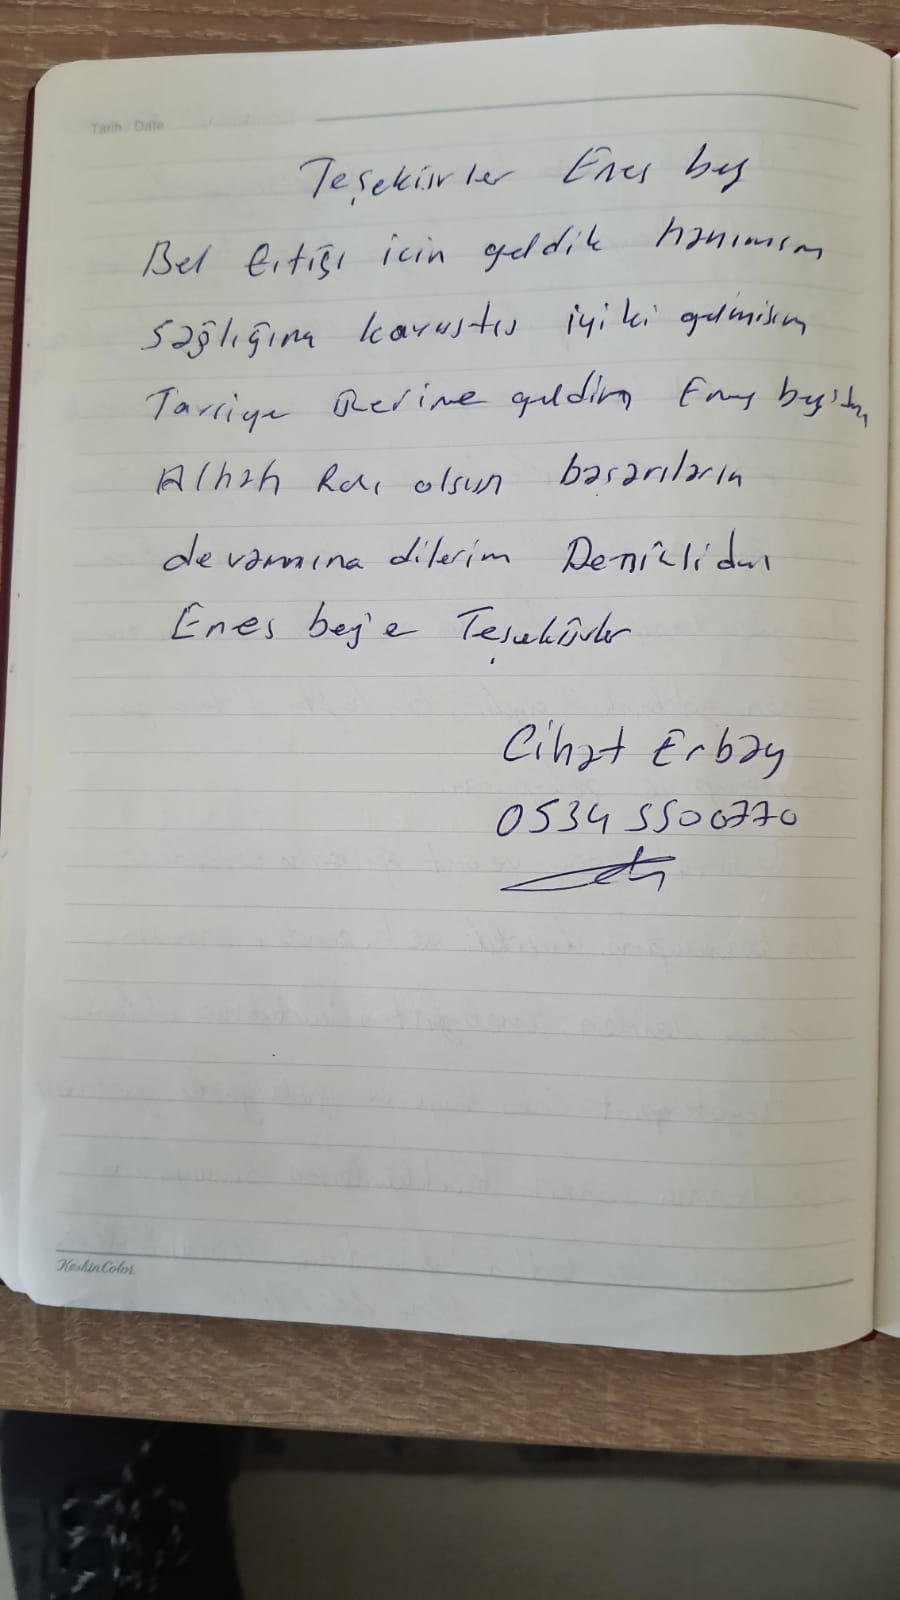 Tarih / Date
Teşekürler Enes bey
Bel fıtığı için geldik hanımım
sağlığına kavustu iyiki gelmişim
Tavsiye Üzerine geldim Enes bey'den
Allhah Razı olsun başarıların
devamınına dilerim Denizlidan
Enes beye Teşekürler
Cihat Erbay
0534 5500770
KeskinColor